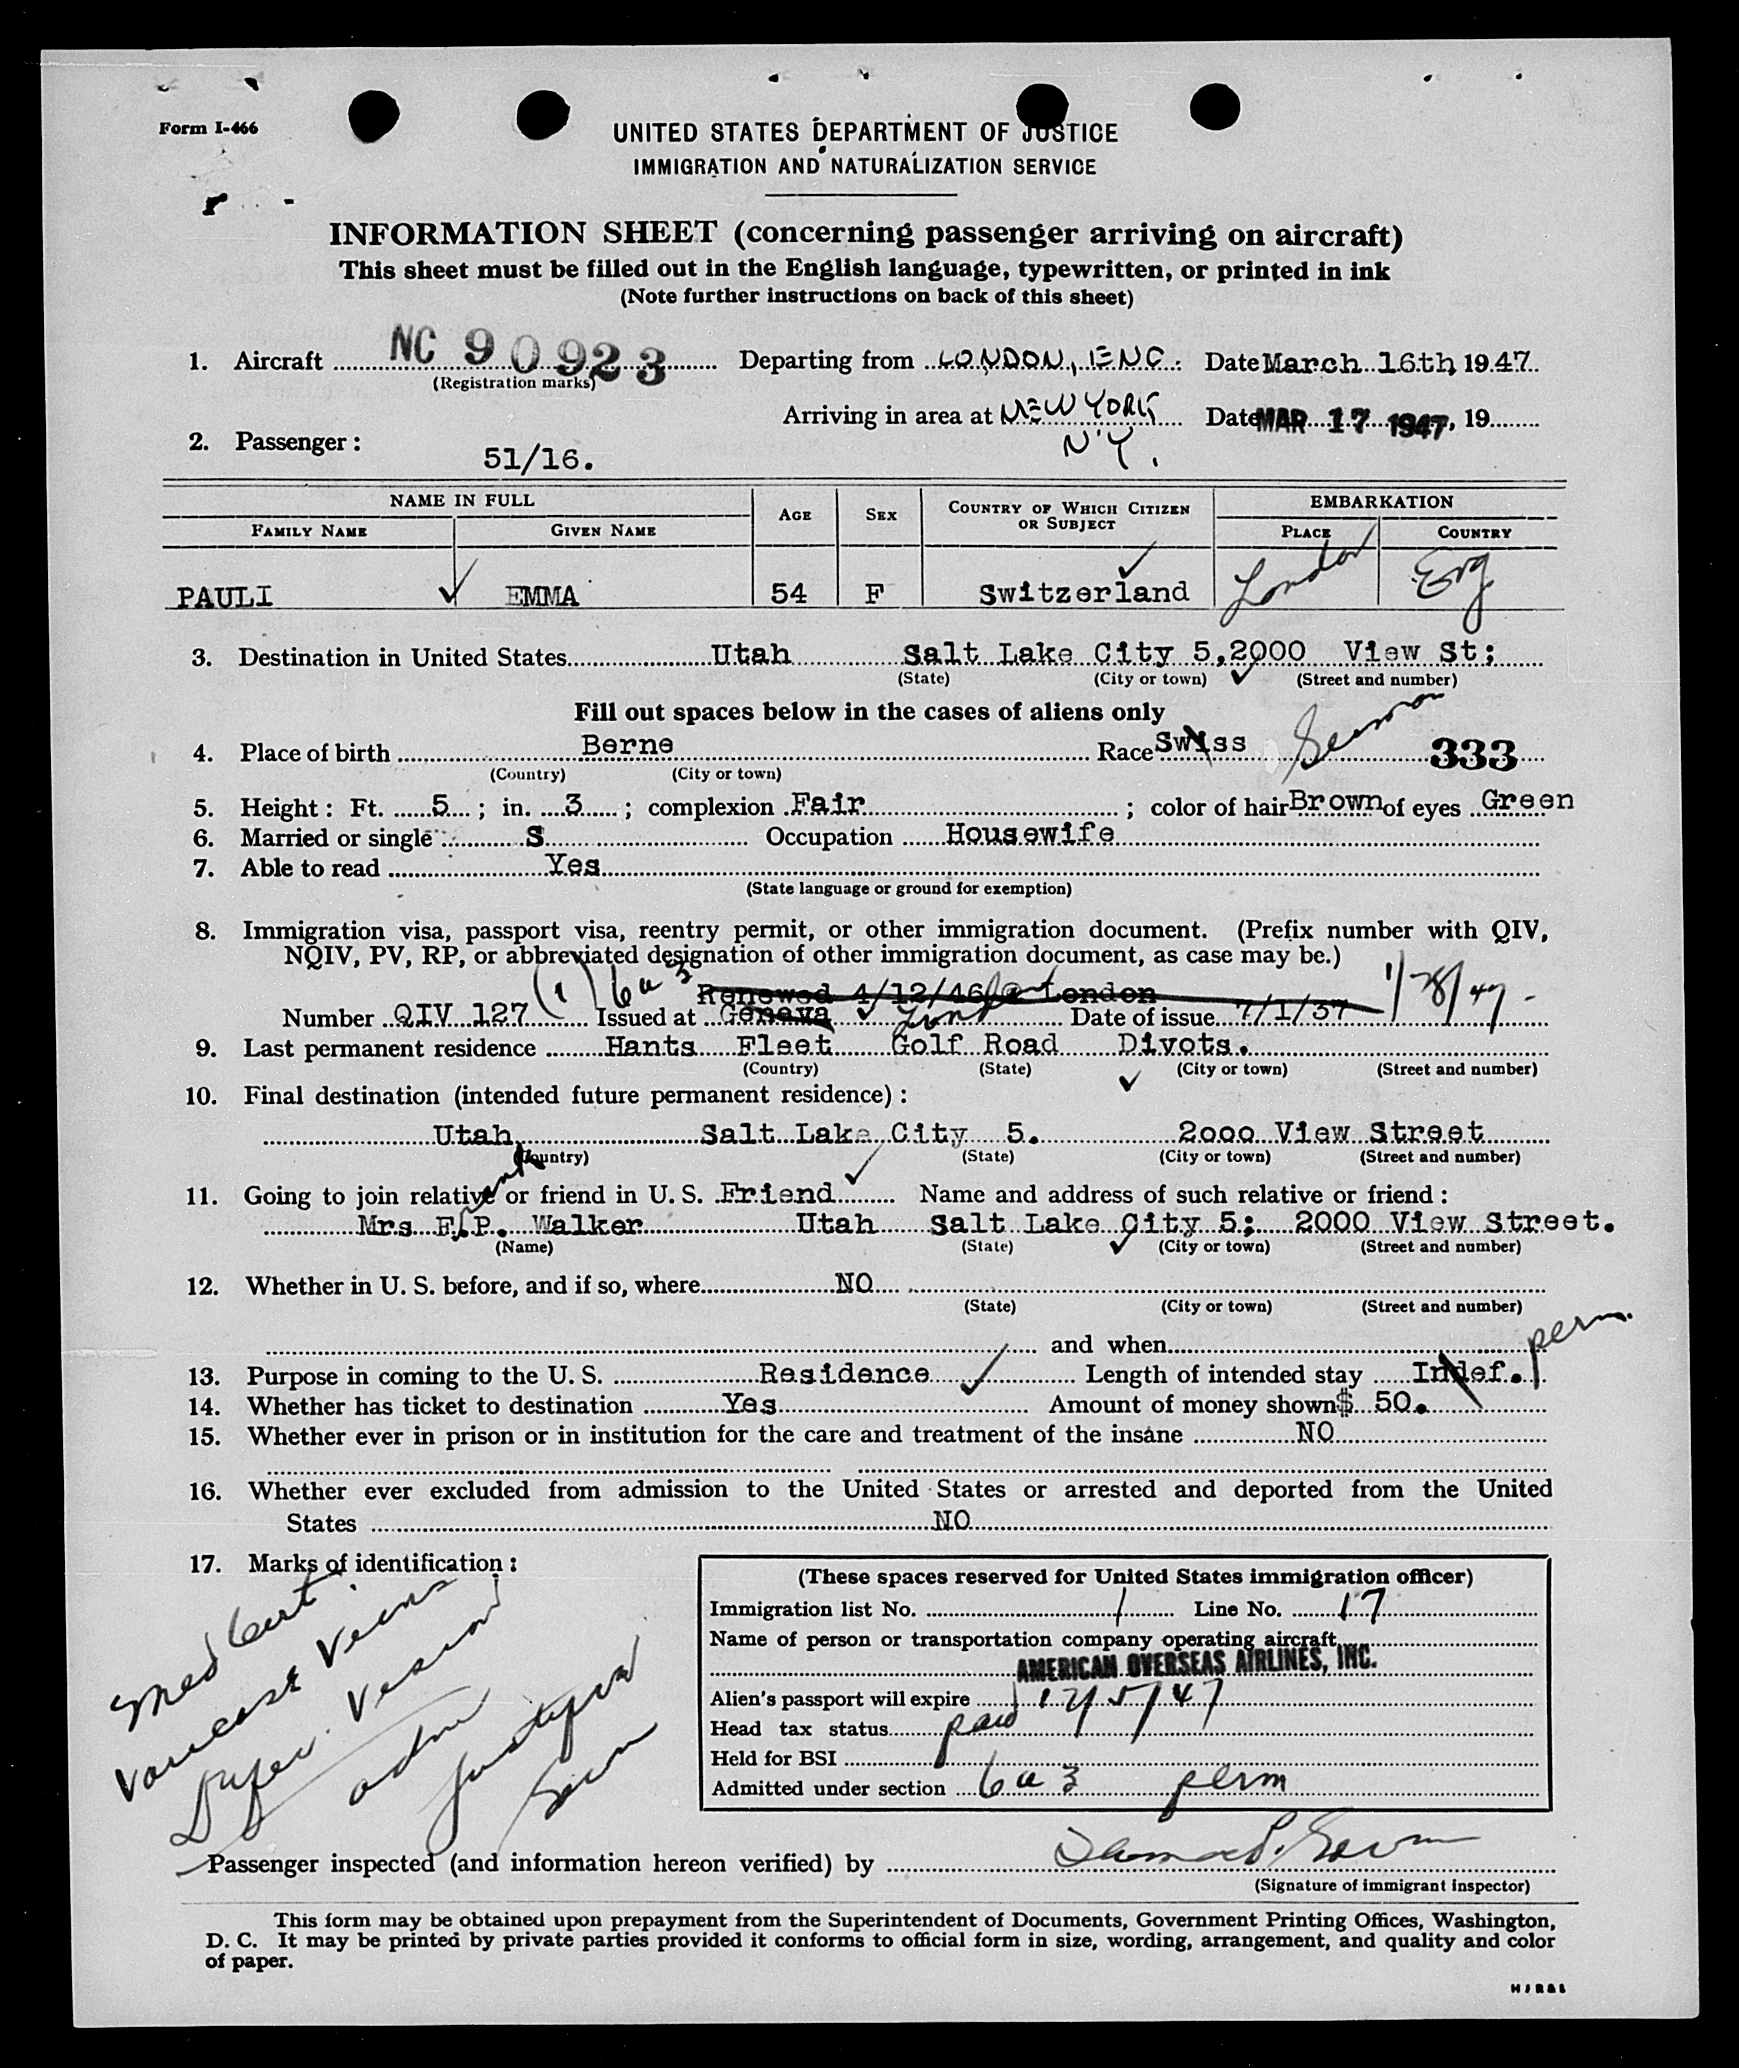 Form I-466
UNITED STATES DEPARTMENT OF JUSTICE
IMMIGRATION AND NATURALIZATION SERVICE
INFORMATION SHEET (concerning passenger arriving on aircraft)
This sheet must be filled out in the English language, typewritten, or printed in ink
(Note further instructions on back of this sheet)
1. Aircraft NC 90923 Departing from LONDON, ENG. Date March 16th, 1947.
(Registration marks)
Arriving in area at NEW YORK Date MAR 17 1947, 19
N.Y.
2. Passenger :
51/16.
NAME IN FULL AGE SEX COUNTRY OF WHICH CITIZEN OR SUBJECT EMBARKATION
FAMILY NAME GIVEN NAME PLACE COUNTRY
PAULI EMMA 54 F Switzerland London Eng
3. Destination in United States Utah Salt Lake City 5, 2000 View St;
(State) (City or town) (Street and number)
Fill out spaces below in the cases of aliens only
4. Place of birth Berne Race Swiss German 333
(Country) (City or town)
5. Height : Ft. 5 ; in. 3 ; complexion Fair ; color of hair Brown of eyes Green
6. Married or single S Occupation Housewife
7. Able to read Yes
(State language or ground for exemption)
8. Immigration visa, passport visa, reentry permit, or other immigration document. (Prefix number with QIV,
NQIV, PV, RP, or abbreviated designation of other immigration document, as case may be.)
(1) 6a3 Renewed 4/12/46 @ London 1/28/47 -
Number QIV 127 Issued at Geneva London Date of issue 7/1/37
9. Last permanent residence Hants Fleet Golf Road Divots.
(Country) (State) (City or town) (Street and number)
10. Final destination (intended future permanent residence) :
Utah, Salt Lake City 5. 2000 View Street
(Country) (State) (City or town) (Street and number)
11. Going to join relative or friend in U. S. Friend Name and address of such relative or friend :
Mrs F. P. Walker Utah Salt Lake City 5; 2000 View Street.
(Name) (State) (City or town) (Street and number)
12. Whether in U. S. before, and if so, where NO
(State) (City or town) (Street and number)
and when
perm.
13. Purpose in coming to the U. S. Residence Length of intended stay Indef.
14. Whether has ticket to destination Yes Amount of money shown $ 50.
15. Whether ever in prison or in institution for the care and treatment of the insane NO
16. Whether ever excluded from admission to the United States or arrested and deported from the United
States NO
17. Marks of identification :
Med Cert.
Varicose Veins
Defec. Vision
(These spaces reserved for United States immigration officer)
Immigration list No. 1 Line No. 17
Name of person or transportation company operating aircraft
AMERICAN OVERSEAS AIRLINES, INC.
Alien's passport will expire 12/5/47
Head tax status paid
Held for BSI
Admitted under section 6a3 perm
Passenger inspected (and information hereon verified) by
(Signature of immigrant inspector)
This form may be obtained upon prepayment from the Superintendent of Documents, Government Printing Offices, Washington,
D. C. It may be printed by private parties provided it conforms to official form in size, wording, arrangement, and quality and color
of paper.